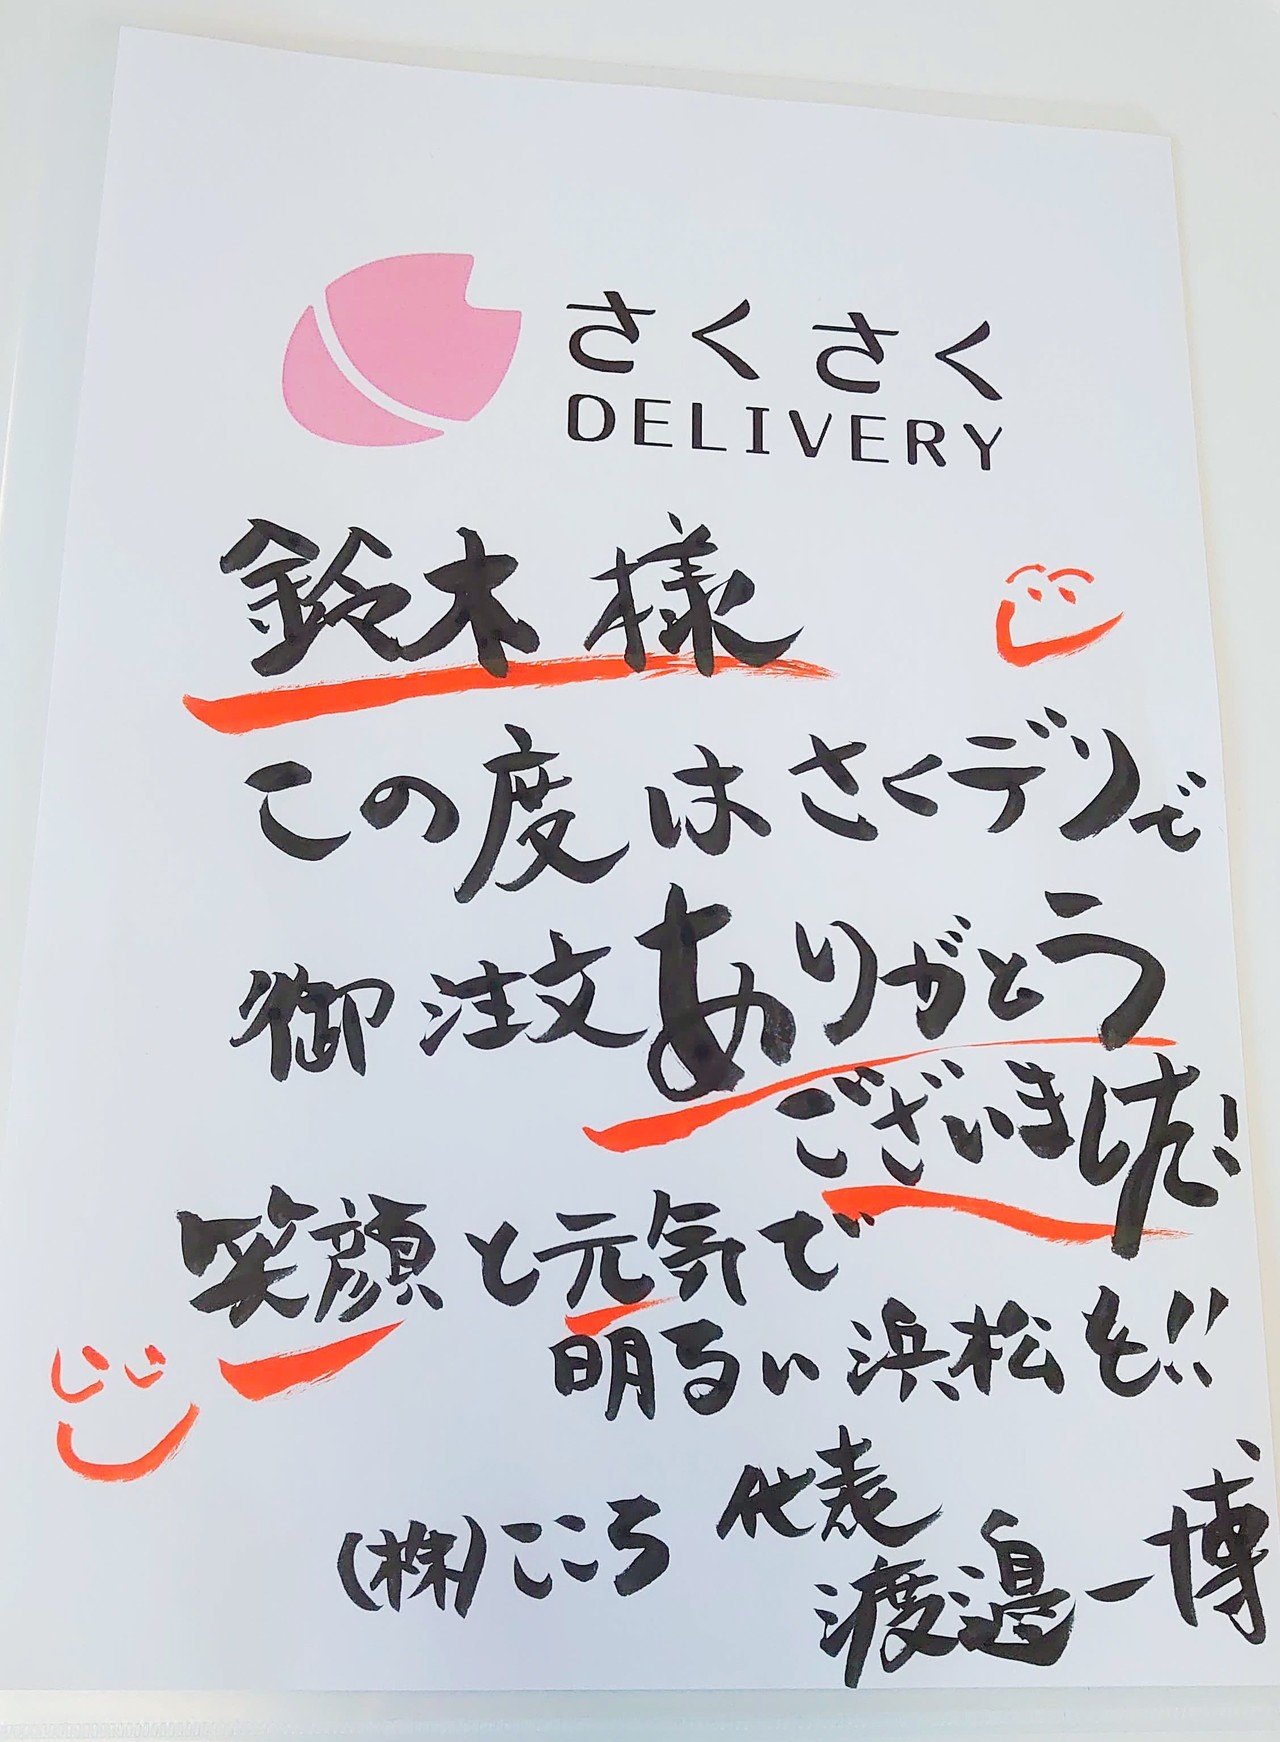 さくさく
DELIVERY
鈴木様
この度はさくデリで
御注文ありがとう
ございました!
笑顔と元気で
明るい浜松を!!
(株)こころ 代表
渡邉一博